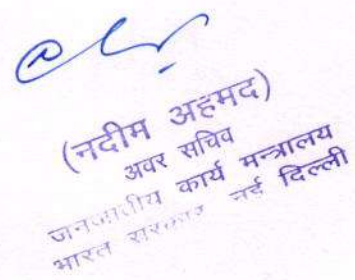 (नदीम अहमद)
अवर सचिव
जनजातीय कार्य मन्त्रालय
भारत सरकार नई दिल्ली